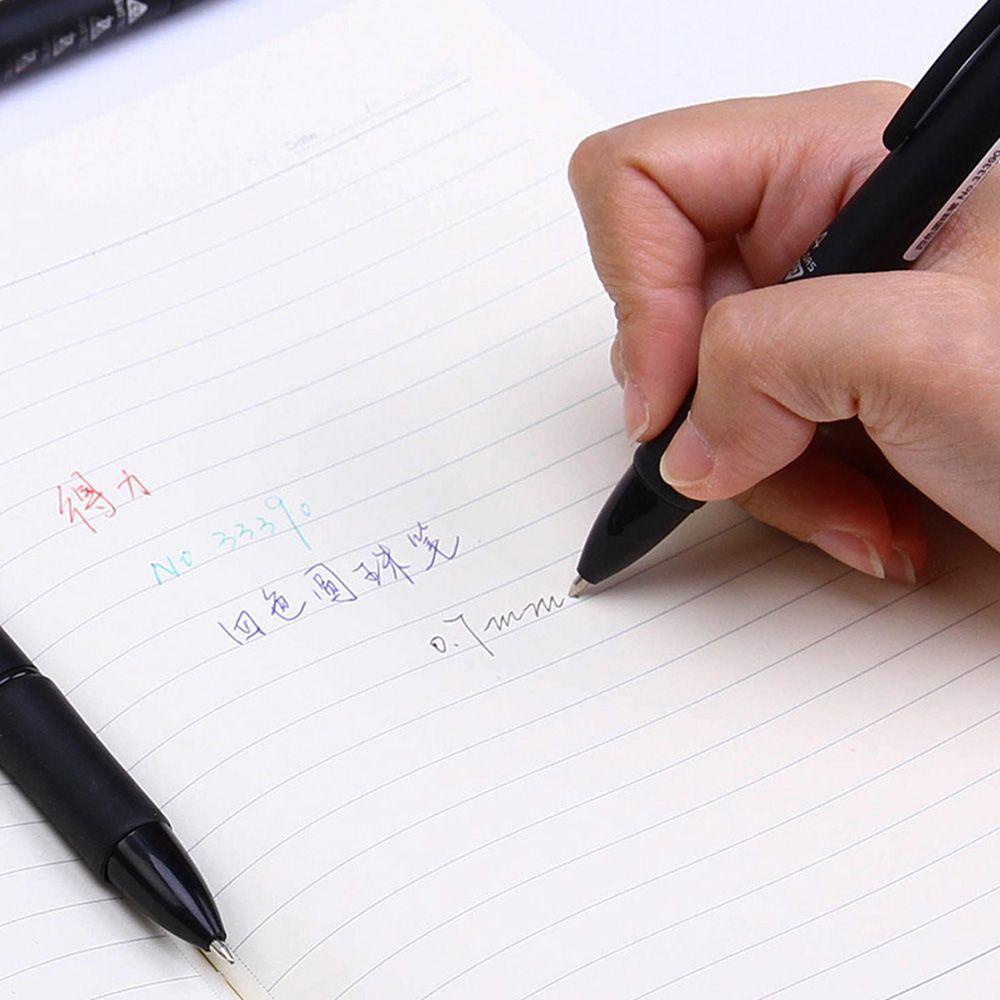 得力
No 33390
四色圆珠笔
0.7mm
Date